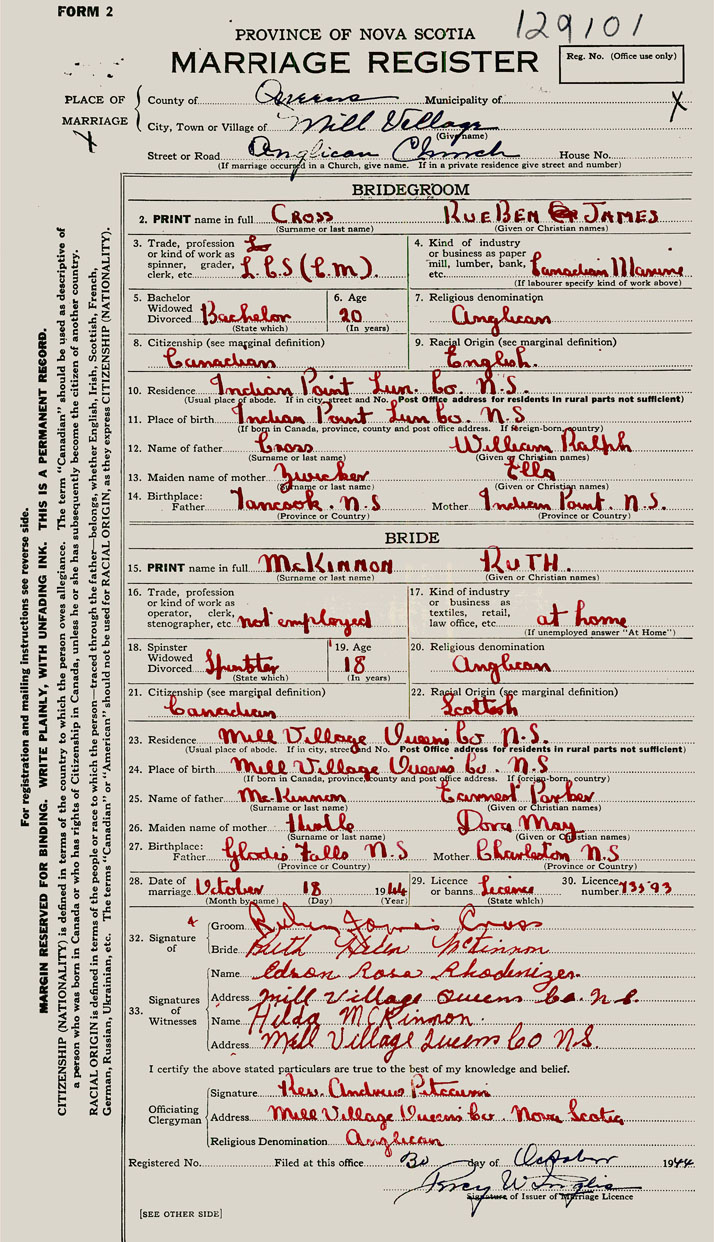 FORM 2
129101
PROVINCE OF NOVA SCOTIA
MARRIAGE REGISTER
Reg. No. (Office use only)
PLACE OF MARRIAGE
X
County of Queens Municipality of X
City, Town or Village of Mill Village
(Give name)
Street or Road Anglican Church House No.
(If marriage occurred in a Church, give name. If in a private residence give street and number)
BRIDEGROOM
2. PRINT name in full CROSS RUEBEN JAMES
(Surname or last name) (Given or Christian names)
3. Trade, profession or kind of work as spinner, grader, clerk, etc. L.C.S (C.M.)
4. Kind of industry or business as paper mill, lumber, bank, etc. Canadian Marine
(If labourer specify kind of work above)
5. Bachelor Widowed Divorced Bachelor
(State which)
6. Age 20
(In years)
7. Religious denomination Anglican
8. Citizenship (see marginal definition) Canadian
9. Racial Origin (see marginal definition) English.
10. Residence Indian Point Lun. Co. N.S.
(Usual place of abode. If in city, street and No. Post Office address for residents in rural parts not sufficient)
11. Place of birth Indian Point Lun Co. N.S
(If born in Canada, province, county and post office address. If foreign-born, country)
12. Name of father Cross William Ralph
(Surname or last name) (Given or Christian names)
13. Maiden name of mother Zwicker Ella
(Surname or last name) (Given or Christian names)
14. Birthplace: Father Tancook. N.S Mother Indian Point. N.S.
(Province or Country) (Province or Country)
BRIDE
15. PRINT name in full McKINNON RUTH.
(Surname or last name) (Given or Christian names)
16. Trade, profession or kind of work as operator, clerk, stenographer, etc. not employed
17. Kind of industry or business as textiles, retail, law office, etc. at home
(If unemployed answer "At Home")
18. Spinster Widowed Divorced Spinster
(State which)
19. Age 18
(In years)
20. Religious denomination Anglican
21. Citizenship (see marginal definition) Canadian
22. Racial Origin (see marginal definition) Scottish
23. Residence Mill Village Queens Co. N.S.
(Usual place of abode. If in city, street and No. Post Office address for residents in rural parts not sufficient)
24. Place of birth Mill Village Queens Co. N.S
(If born in Canada, province, county and post office address. If foreign-born, country)
25. Name of father McKinnon Earnest Parker
(Surname or last name) (Given or Christian names)
26. Maiden name of mother Dora May
(Surname or last name) (Given or Christian names)
27. Birthplace: Father Falls N.S Mother Charleston N.S
(Province or Country) (Province or Country)
28. Date of marriage October 18 1944
(Month by name) (Day) (Year)
29. Licence or banns. Licence
(State which)
30. Licence number 73593
32. Signature of
Groom James Cross
Bride Ruth Helen McKinnon
33. Signatures of Witnesses
Name Edson Ross Rhodenizer.
Address Mill Village Queens Co. N.S.
Name Hilda McKinnon.
Address Mill Village Queens Co N.S.
I certify the above stated particulars are true to the best of my knowledge and belief.
Officiating Clergyman
Signature Rev. Andrew Pitcairn
Address Mill Village Queens Co. Nova Scotia
Religious Denomination Anglican
Registered No. Filed at this office 30 day of October 1944
Percy W Inglis
Signature of Issuer of Marriage Licence
[SEE OTHER SIDE]
For registration and mailing instructions see reverse side.
MARGIN RESERVED FOR BINDING. WRITE PLAINLY, WITH UNFADING INK. THIS IS A PERMANENT RECORD.
CITIZENSHIP (NATIONALITY) is defined in terms of the country to which the person owes allegiance. The term "Canadian" should be used as descriptive of
a person who was born in Canada or who has rights of Citizenship in Canada, unless he or she has subsequently become the citizen of another country.
RACIAL ORIGIN is defined in terms of the people or race to which the person—traced through the father—belongs, whether English, Irish, Scottish, French,
German, Russian, Ukrainian, etc. The terms "Canadian" or "American" should not be used for RACIAL ORIGIN, as they express CITIZENSHIP (NATIONALITY).